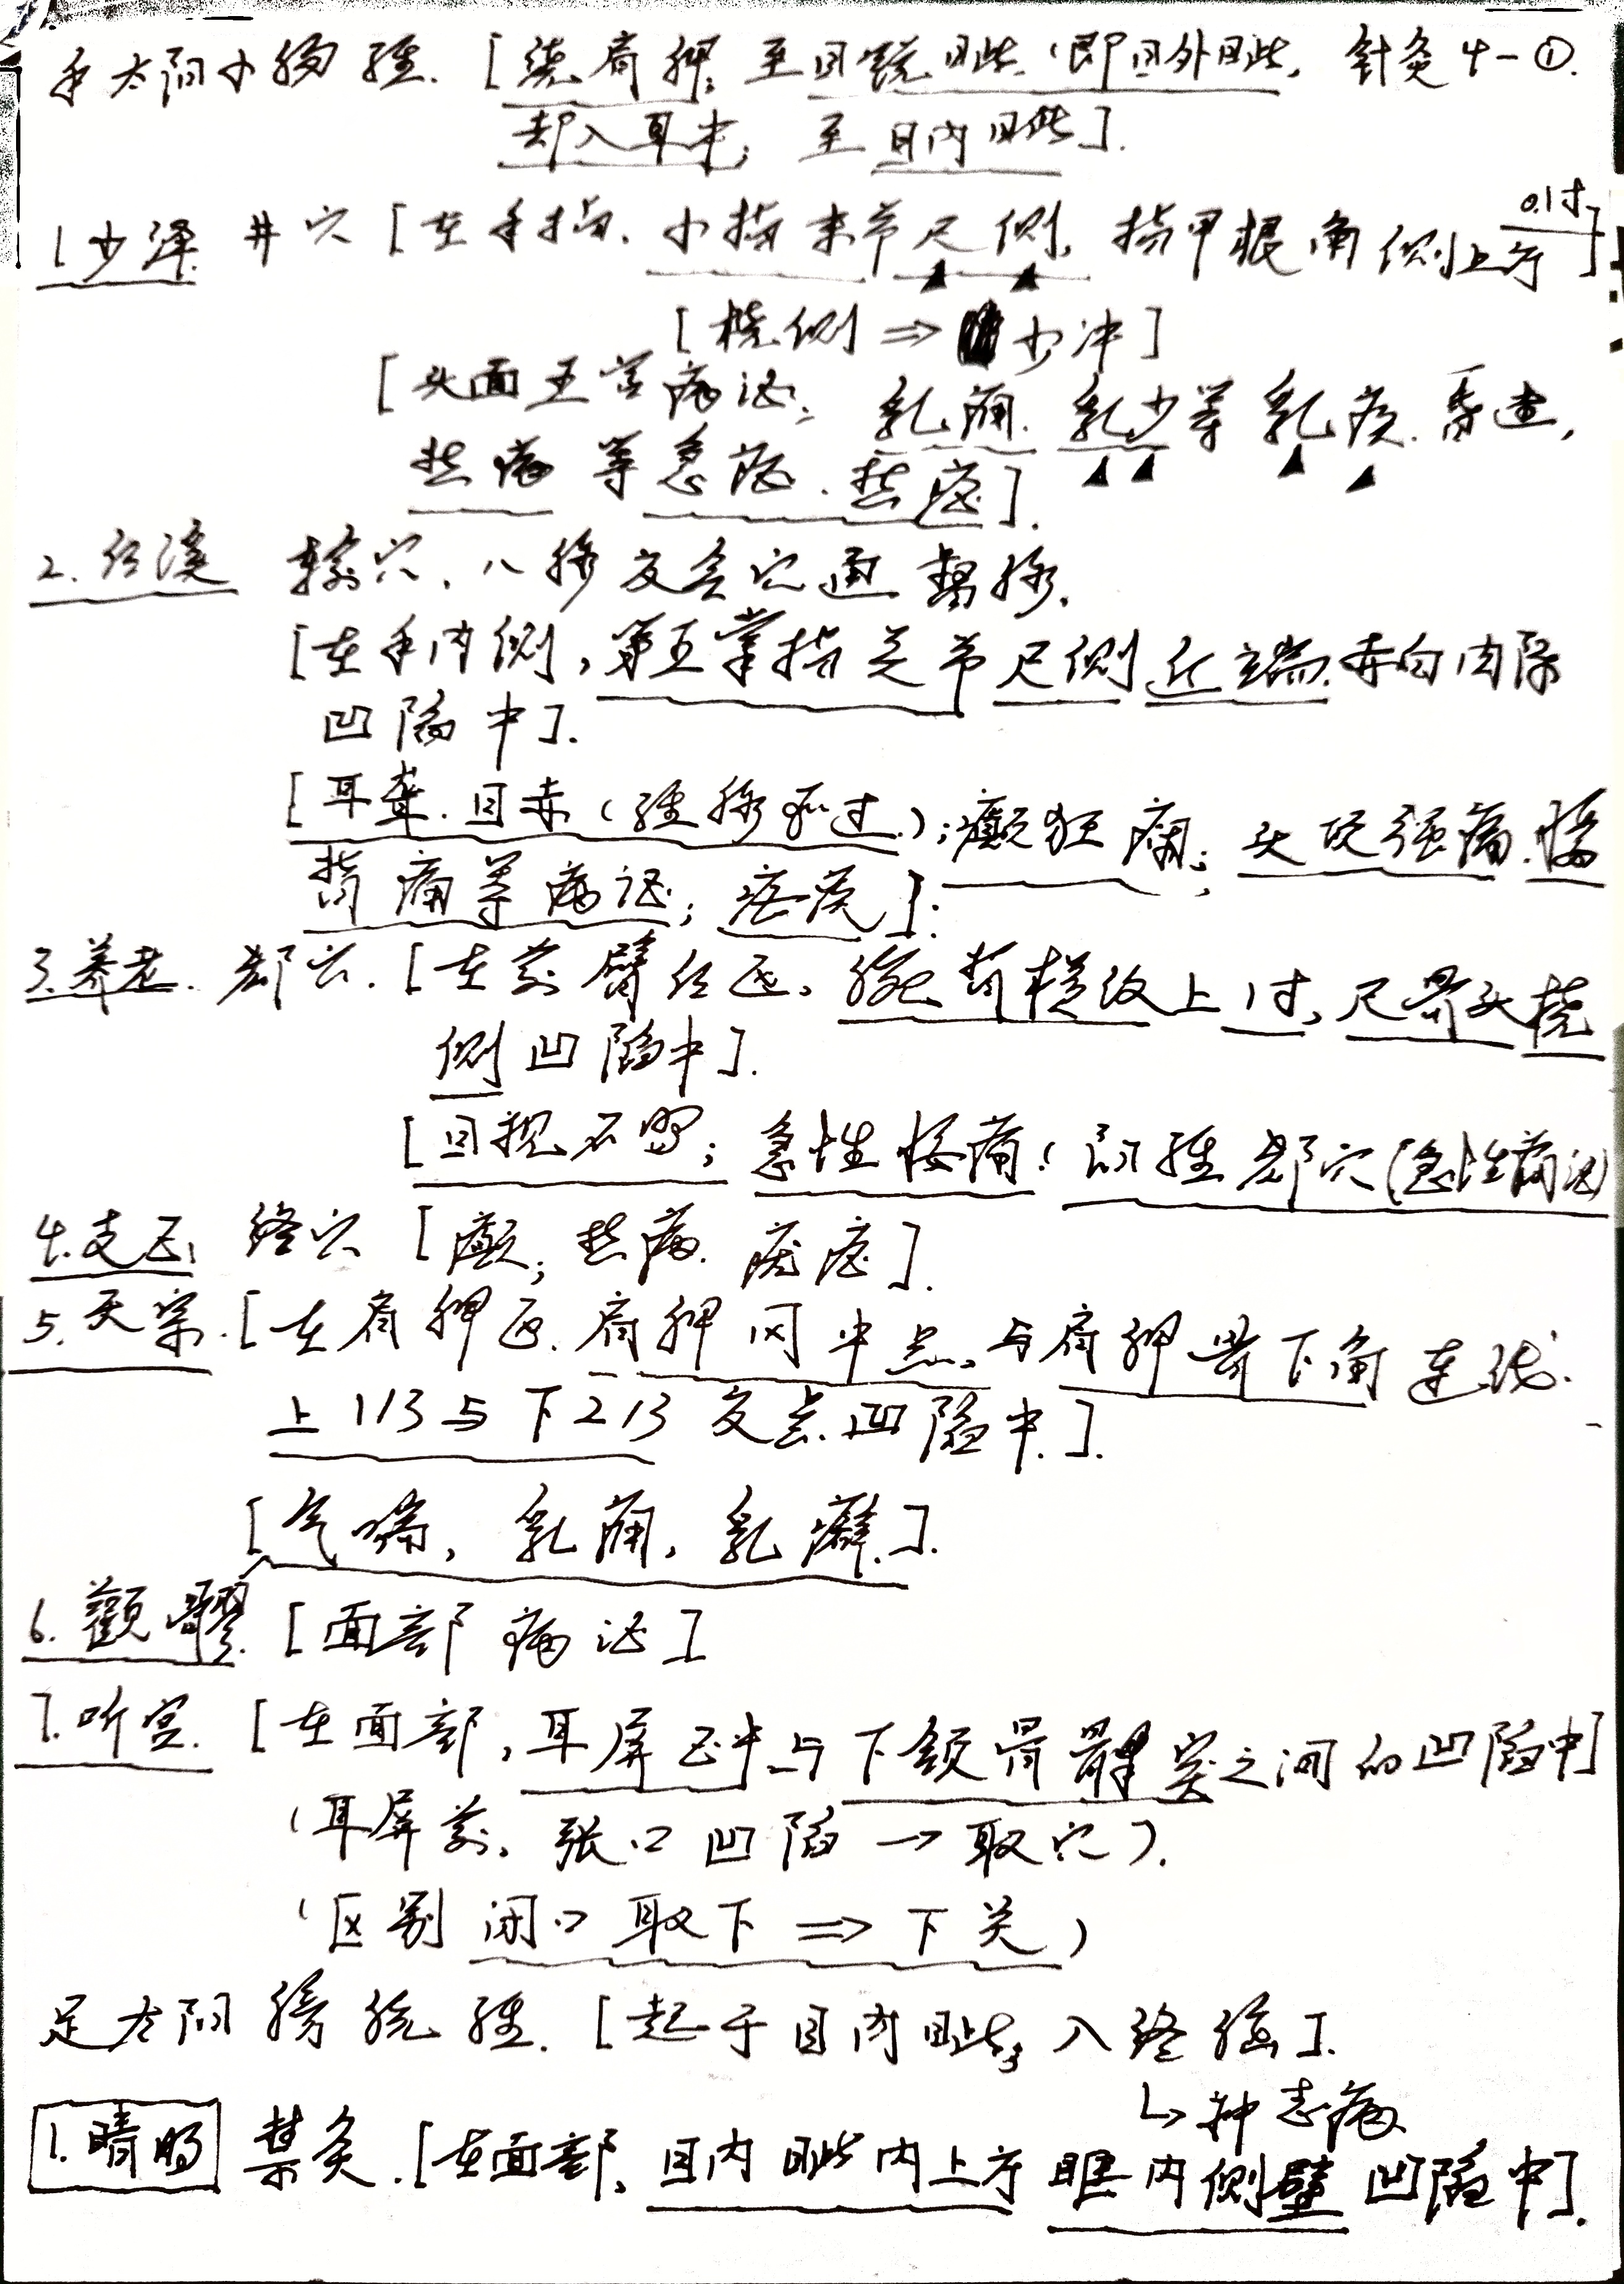 手太阳小肠经. [绕肩胛, 至目锐眦.(即目外眦. 针灸4-①.
却入耳中, 至目内眦].
1.少泽 井穴 [在手指. 小指末节尺侧, 指甲根角侧上方0.1寸]
[桡侧⇒少冲]
[头面五官病证; 乳痈. 乳少等乳疾. 昏迷,
热病等急症. 热症].
2.后溪 输穴. 八脉交会穴通督脉.
[在手内侧, 第五掌指关节尺侧近端赤白肉际
凹陷中].
[耳聋. 目赤(经脉所过.); 癫狂痫; 头项强痛. 腰
背痛等病证; 疟疾].
3.养老. 郄穴. [在前臂后区. 腕背横纹上1寸, 尺骨头桡
侧凹陷中].
[目视不明; 急性腰痛! 阳经郄穴(急性痛证)
4.支正 络穴 [癫; 热病. 疣症].
5.天宗.[在肩胛区. 肩胛冈中点与肩胛骨下角连线.
上1/3与下2/3交点.凹陷中.].
[气喘, 乳痈, 乳癖.].
6.颧髎. [面部病证]
7.听宫. [在面部, 耳屏正中与下颌骨髁突之间的凹陷中]
(耳屏前. 张口凹陷→取穴).
(区别 闭口取下⇒下关)
足太阳膀胱经. [起于目内眦, 入络脑].
↳神志病
1.睛明 禁灸.[在面部. 目内眦内上方眶内侧壁凹陷中].